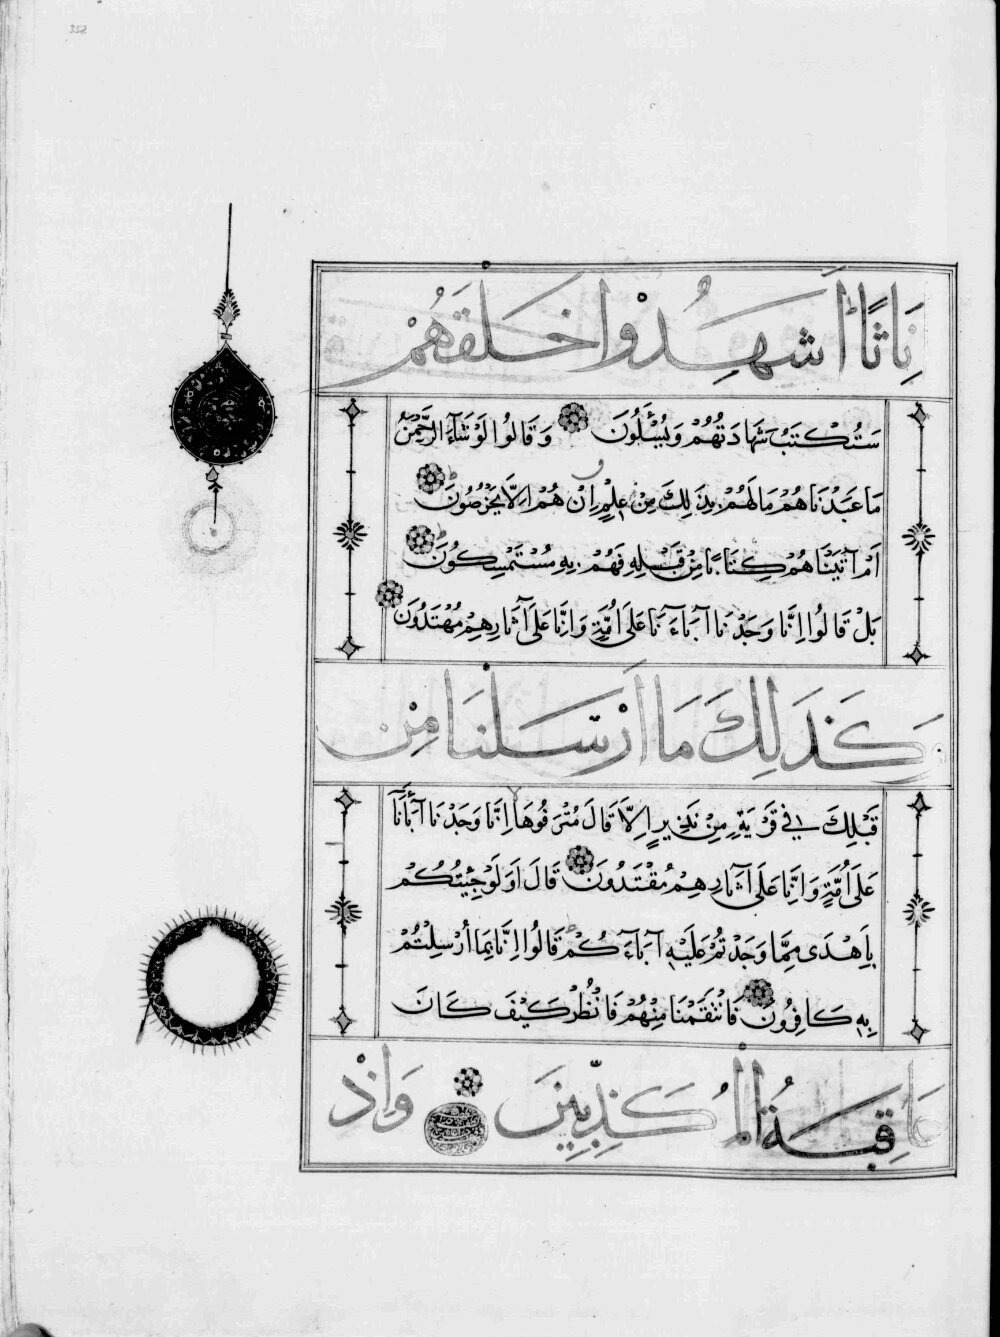 نَاثًا أَشَهِدُوا خَلْقَهُمْ
سَتُكْتَبُ شَهَادَتُهُمْ وَيُسْئَلُونَ وَقَالُوا لَوْ شَآءَ الرَّحْمٰنُ
مَا عَبَدْنَاهُمْ مَا لَهُمْ بِذَلِكَ مِنْ عِلْمٍ اِنْ هُمْ اِلَّا يَخْرُصُونَ
اَمْ آتَيْنَاهُمْ كِتَابًا مِنْ قَبْلِهِ فَهُمْ بِهِ مُسْتَمْسِكُونَ
بَلْ قَالُوا اِنَّا وَجَدْنَا آبَاءَنَا عَلَى اُمَّةٍ وَاِنَّا عَلَى آثَارِهِمْ مُهْتَدُونَ
وَكَذَلِكَ مَا اَرْسَلْنَا مِنْ
قَبْلِكَ فِي قَرْيَةٍ مِنْ نَذِيرٍ اِلَّا قَالَ مُتْرَفُوهَا اِنَّا وَجَدْنَا آبَاءَنَا
عَلَى اُمَّةٍ وَاِنَّا عَلَى آثَارِهِمْ مُقْتَدُونَ قَالَ اَوَلَوْ جِئْتُكُمْ
بِاَهْدَى مِمَّا وَجَدْتُمْ عَلَيْهِ آبَاءَكُمْ قَالُوا اِنَّا بِمَا اُرْسِلْتُمْ
بِهِ كَافِرُونَ فَانْتَقَمْنَا مِنْهُمْ فَانْظُرْ كَيْفَ كَانَ
عَاقِبَةُ الْمُكَذِّبِينَ وَاِذْ